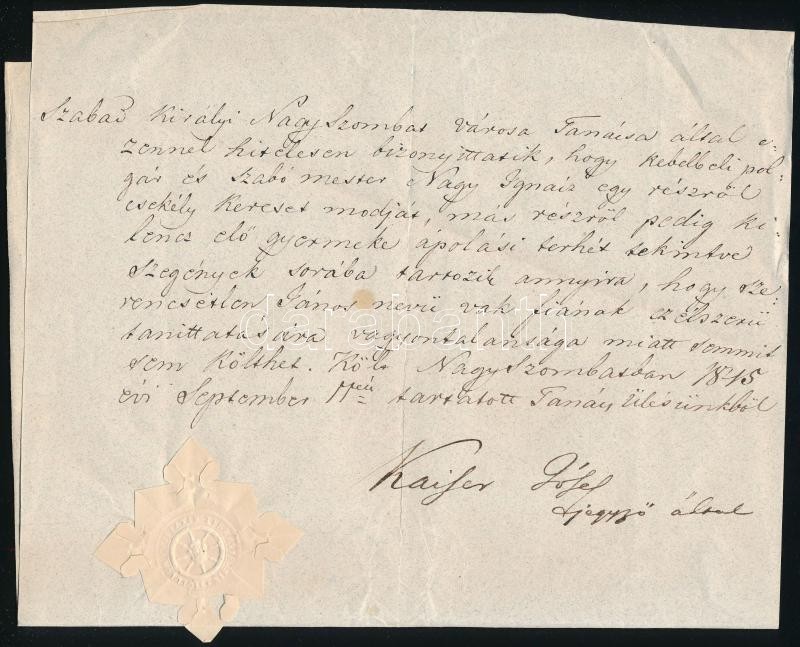 Szabad Királyi NagySzombat városa Tanácsa által e-
zennel hitelesen bizonyittatik, hogy kebelbeli pol-
gár és szabó mester Nagy Ignácz egy részről
csekély kereset modját, más részről pedig ki-
lencz elő gyermeke ápolási terhét tekintve
szegények sorába tartozik annyira, hogy sze-
rencsétlen János nevü vak fiának czélszerü
tanittatására vagyontalansága miatt semmit
sem költhet. Költ NagySzombatban 1845
évi September 17én tartatott Tanács Ülésünkből
Kaiser Jósef
jegyző által
darabanth